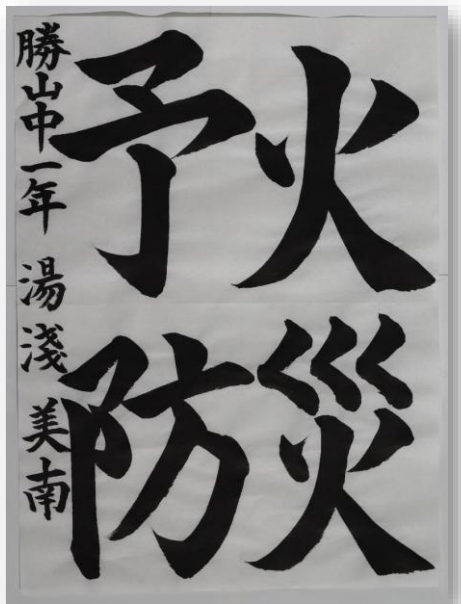 火災
予防
勝山中一年 湯淺 美南